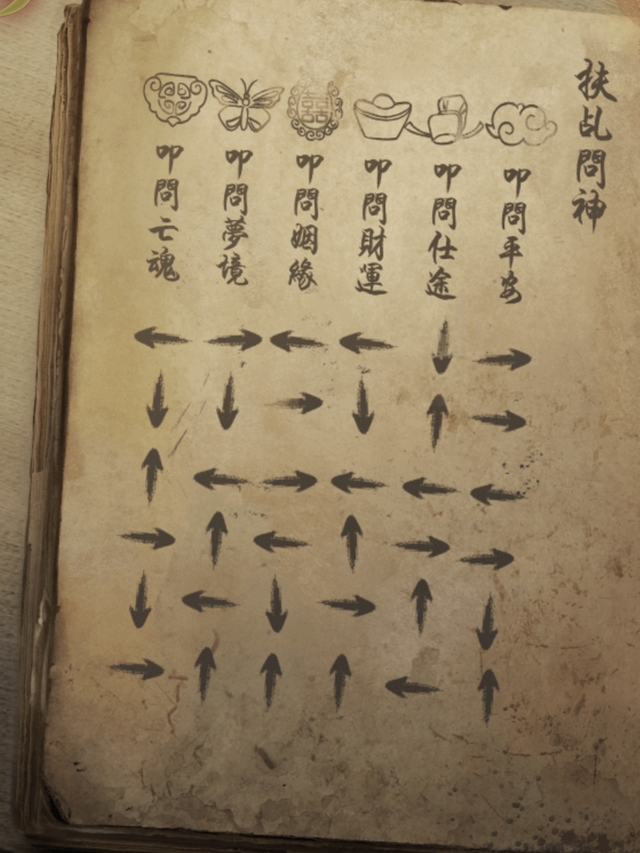 扶乩問神
叩問平安
叩問仕途
叩問財運
叩問姻緣
叩問夢境
叩問亡魂